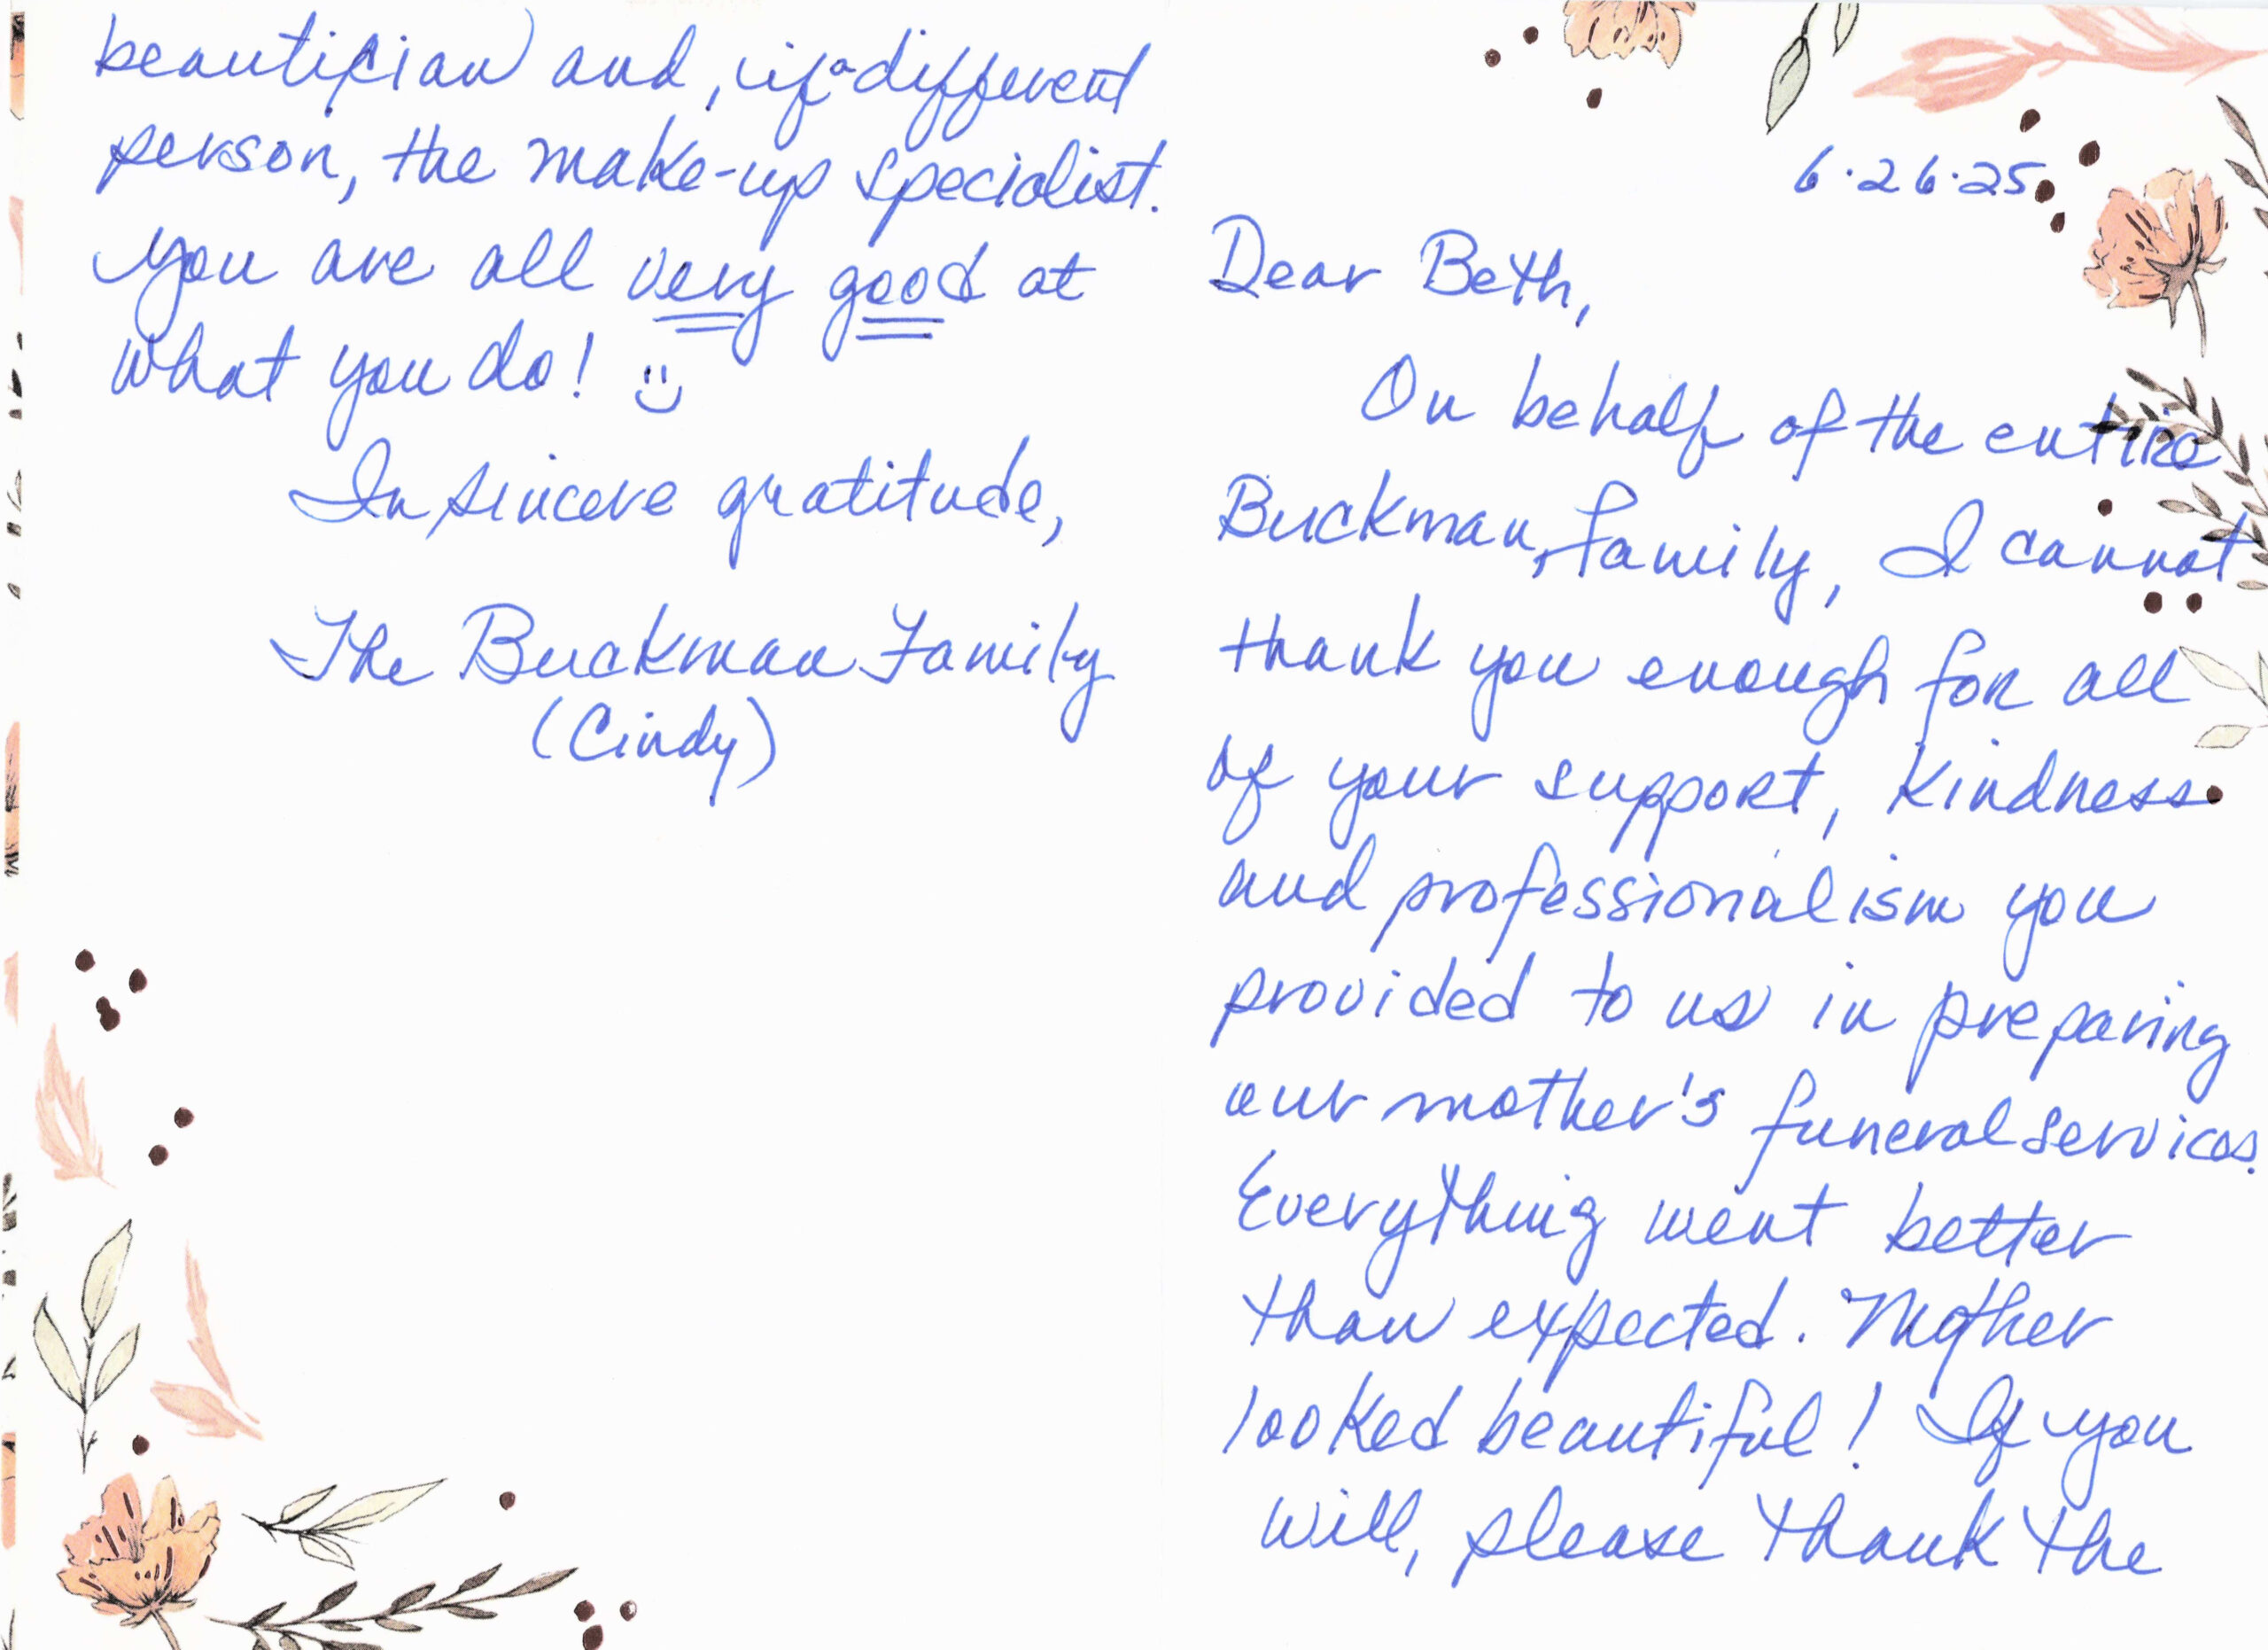 6.26.25
Dear Beth,
On behalf of the entire
Buckman family, I cannot
thank you enough for all
of your support, kindness
and professionalism you
provided to us in preparing
our mother's funeral services.
Everything went better
than expected. Mother
looked beautiful! If you
will, please thank the
beautician and, if a different
person, the make-up specialist.
You are all very good at
what you do! :)
In sincere gratitude,
The Buckman Family
(Cindy)